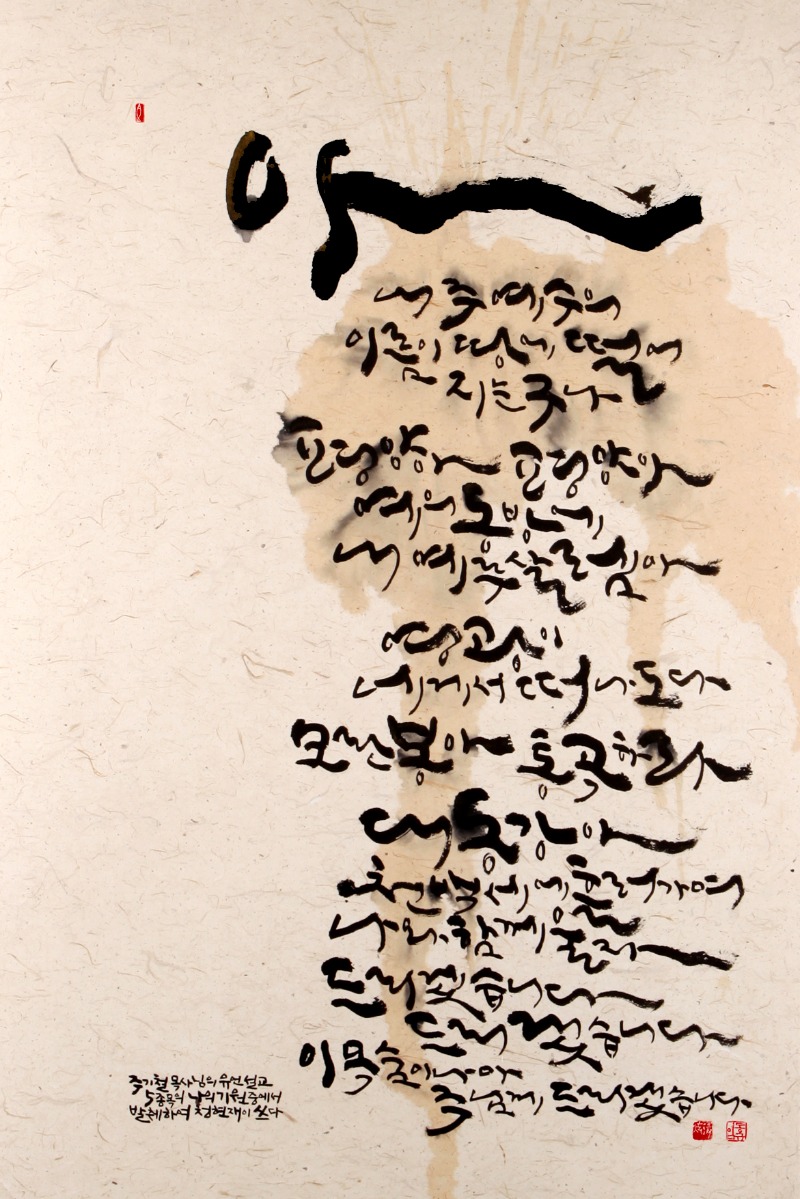 아
내 주 예수의
이름이 땅에 떨어
지는구나
평양아 평양아
예의 동방에
내 예루살렘아
영광이
네게서 떠나도다
모란봉아 통곡하라
대동강아
천백세에 흘러가며
나와 함께 울자
드리겠습니다
드리겠습니다
이 목숨이나마
주님께 드리겠습니다
주기철 목사님의 유언설교
5종목의 나의 기원 중에서
발췌하여 청현재이 쓰다